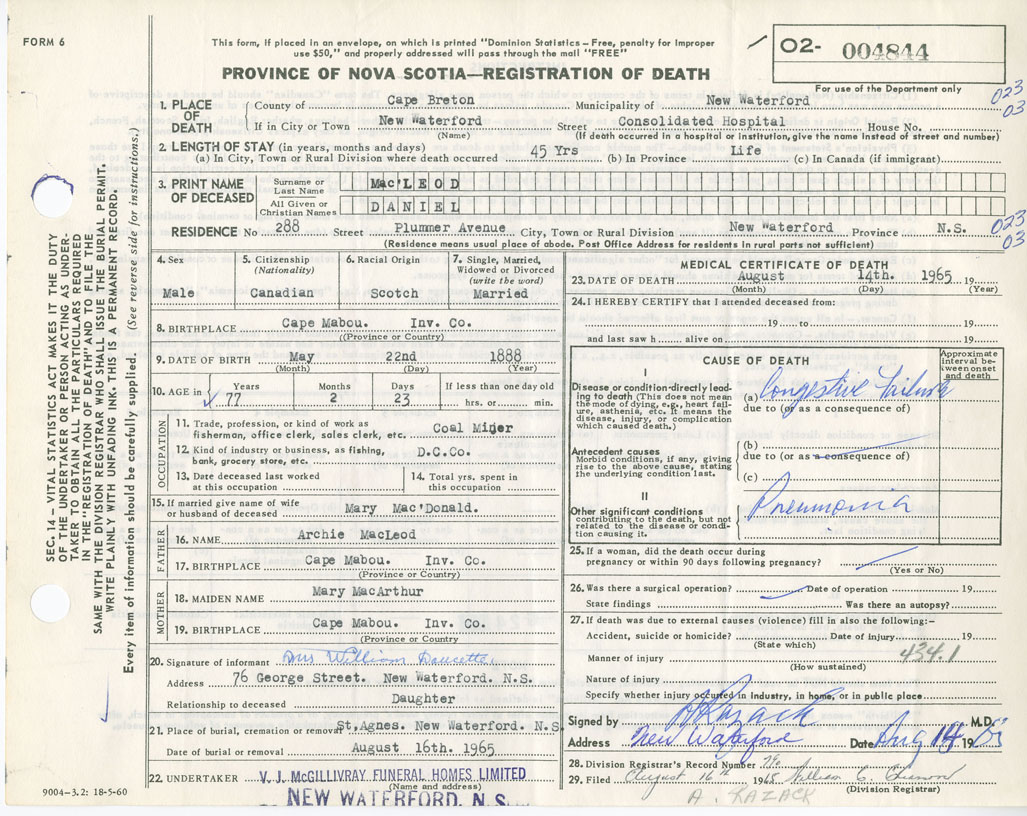 FORM 6
This form, if placed in an envelope, on which is printed "Dominion Statistics – Free, penalty for improper
use $50," and properly addressed will pass through the mail "FREE"
PROVINCE OF NOVA SCOTIA—REGISTRATION OF DEATH
O2- 004844
For use of the Department only
023
03
1. PLACE OF DEATH
County of Cape Breton Municipality of New Waterford
If in City or Town New Waterford Street Consolidated Hospital House No.
(Name) (If death occurred in a hospital or institution, give the name instead of street and number)
2. LENGTH OF STAY (in years, months and days)
(a) In City, Town or Rural Division where death occurred 45 Yrs (b) In Province Life (c) In Canada (if immigrant)
3. PRINT NAME OF DECEASED
Surname or Last Name Mac'LEOD
All Given or Christian Names DANIEL
RESIDENCE No 288 Street Plummer Avenue City, Town or Rural Division New Waterford Province N.S.
023
03
(Residence means usual place of abode. Post Office Address for residents in rural parts not sufficient)
SEC. 14 – VITAL STATISTICS ACT MAKES IT THE DUTY
OF THE UNDERTAKER OR PERSON ACTING AS UNDER-
TAKER TO OBTAIN ALL THE PARTICULARS REQUIRED
IN THE "REGISTRATION OF DEATH" AND TO FILE THE
SAME WITH THE DIVISION REGISTRAR WHO SHALL ISSUE THE BURIAL PERMIT.
WRITE PLAINLY WITH UNFADING INK. THIS IS A PERMANENT RECORD.
Every item of information should be carefully supplied. (See reverse side for instructions.)
4. Sex
Male
5. Citizenship
(Nationality)
Canadian
6. Racial Origin
Scotch
7. Single, Married,
Widowed or Divorced
(write the word)
Married
8. BIRTHPLACE Cape Mabou. Inv. Co.
((Province or Country)
9. DATE OF BIRTH May 22nd 1888
(Month) (Day) (Year)
10. AGE in Years Months Days If less than one day old
77 2 23 hrs. or min.
OCCUPATION
11. Trade, profession, or kind of work as
fisherman, office clerk, sales clerk, etc. Coal Miner
12. Kind of industry or business, as fishing,
bank, grocery store, etc. D.C.Co.
13. Date deceased last worked
at this occupation
14. Total yrs. spent in
this occupation
15. If married give name of wife
or husband of deceased Mary Mac'Donald.
FATHER
16. NAME Archie MacLeod
17. BIRTHPLACE Cape Mabou. Inv. Co.
(Province or Country)
MOTHER
18. MAIDEN NAME Mary MacArthur
19. BIRTHPLACE Cape Mabou. Inv. Co.
(Province or Country
20. Signature of informant Mrs William Doucette
Address 76 George Street. New Waterford. N.S.
Relationship to deceased Daughter
21. Place of burial, cremation or removal St,Agnes. New Waterford. N.S
Date of burial or removal August 16th. 1965
22. UNDERTAKER V. J. McGILLIVRAY FUNERAL HOMES LIMITED
(Name and address)
NEW WATERFORD, N.S.
9004-3.2: 18-5-60
MEDICAL CERTIFICATE OF DEATH
23. DATE OF DEATH August 14th. 1965 19
(Month) (Day) (Year)
24. I HEREBY CERTIFY that I attended deceased from:
19 to 19
and last saw h alive on 19
CAUSE OF DEATH
Approximate
interval be-
tween onset
and death
I
Disease or condition directly lead-
ing to death (This does not mean
the mode of dying, e.g., heart fail-
ure, asthenia, etc. It means the
disease, injury, or complication
which caused death.)
(a) Congestive Failure
due to (or as a consequence of)
Antecedent causes
Morbid conditions, if any, giving
rise to the above cause, stating
the underlying condition last.
(b)
due to (or as a consequence of)
(c)
II
Other significant conditions
contributing to the death, but not
related to the disease or condi-
tion causing it.
Pneumonia
25. If a woman, did the death occur during
pregnancy or within 90 days following pregnancy?
(Yes or No)
26. Was there a surgical operation? Date of operation 19
State findings Was there an autopsy?
27. If death was due to external causes (violence) fill in also the following:–
Accident, suicide or homicide? Date of injury 19
(State which)
434.1
Manner of injury
(How sustained)
Nature of injury
Specify whether injury occurred in industry, in home, or in public place
Signed by A Razack M.D.
Address New Waterford Date Aug 14 1965
28. Division Registrar's Record Number
29. Filed August 16th 1965 William C.
(Division Registrar)
A. RAZACK